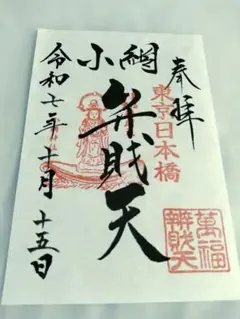 奉拝
東京日本橋
小網
弁財天
萬福
辨財天
令和七年十月
十五日